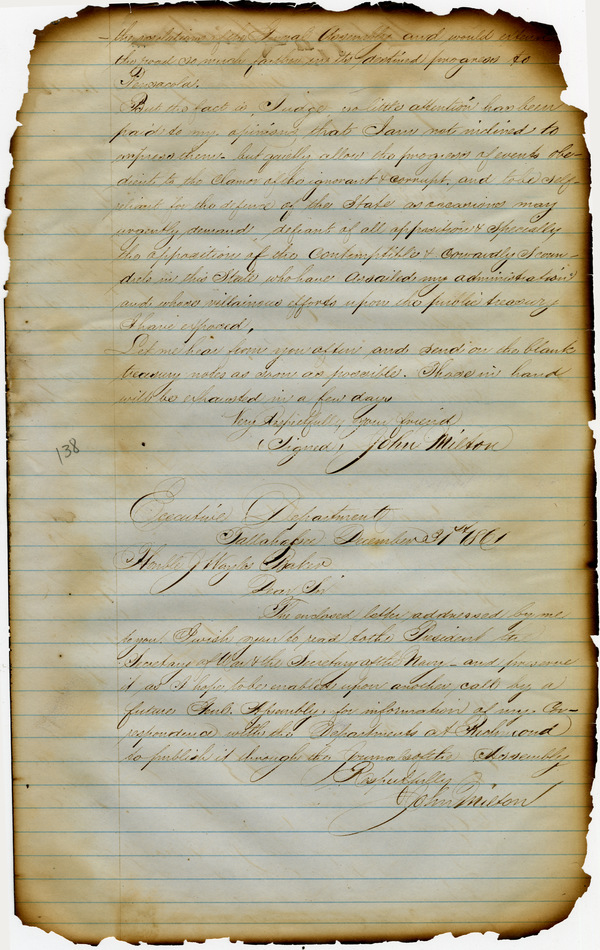 the resolutions of the General Assembly and would extend
the road so much further in its destined progress to
Pensacola.
But the fact is, Judge, so little attention has been
paid to my opinions, that I am not inclined to
express them. but quietly allow the progress of events obe-
dient to the Clamor of the ignorant & Corrupt, and to be self-
reliant for the defence of the State as occasions may
urgently demand, defiant of all opposition & Specially
the opposition of the Contemptible & Cowardly Scoun-
drels in this State who have assailed my administration
and whose villainous efforts upon the public treasury
I have exposed.
Let me hear from you often and send on the blank
treasury notes as soon as possible. Those in hand
will be exhausted in a few days
Very Respectfully your friend
(Signed) John Milton
138
Executive Department
Tallahassee December 31st 1861
Honble J Wayles Baker
Dear Sir
The enclosed letter addressed by me
to you I wish you to read to the President the
Secretary of War & the Secretary of the Navy - and preserve
it as I hope to be enabled upon another call by a
future Genl. Assembly, for information of my Cor-
respondence with the Departments at Richmond
to publish it through the Journals of the Assembly
Respectfully
John Milton